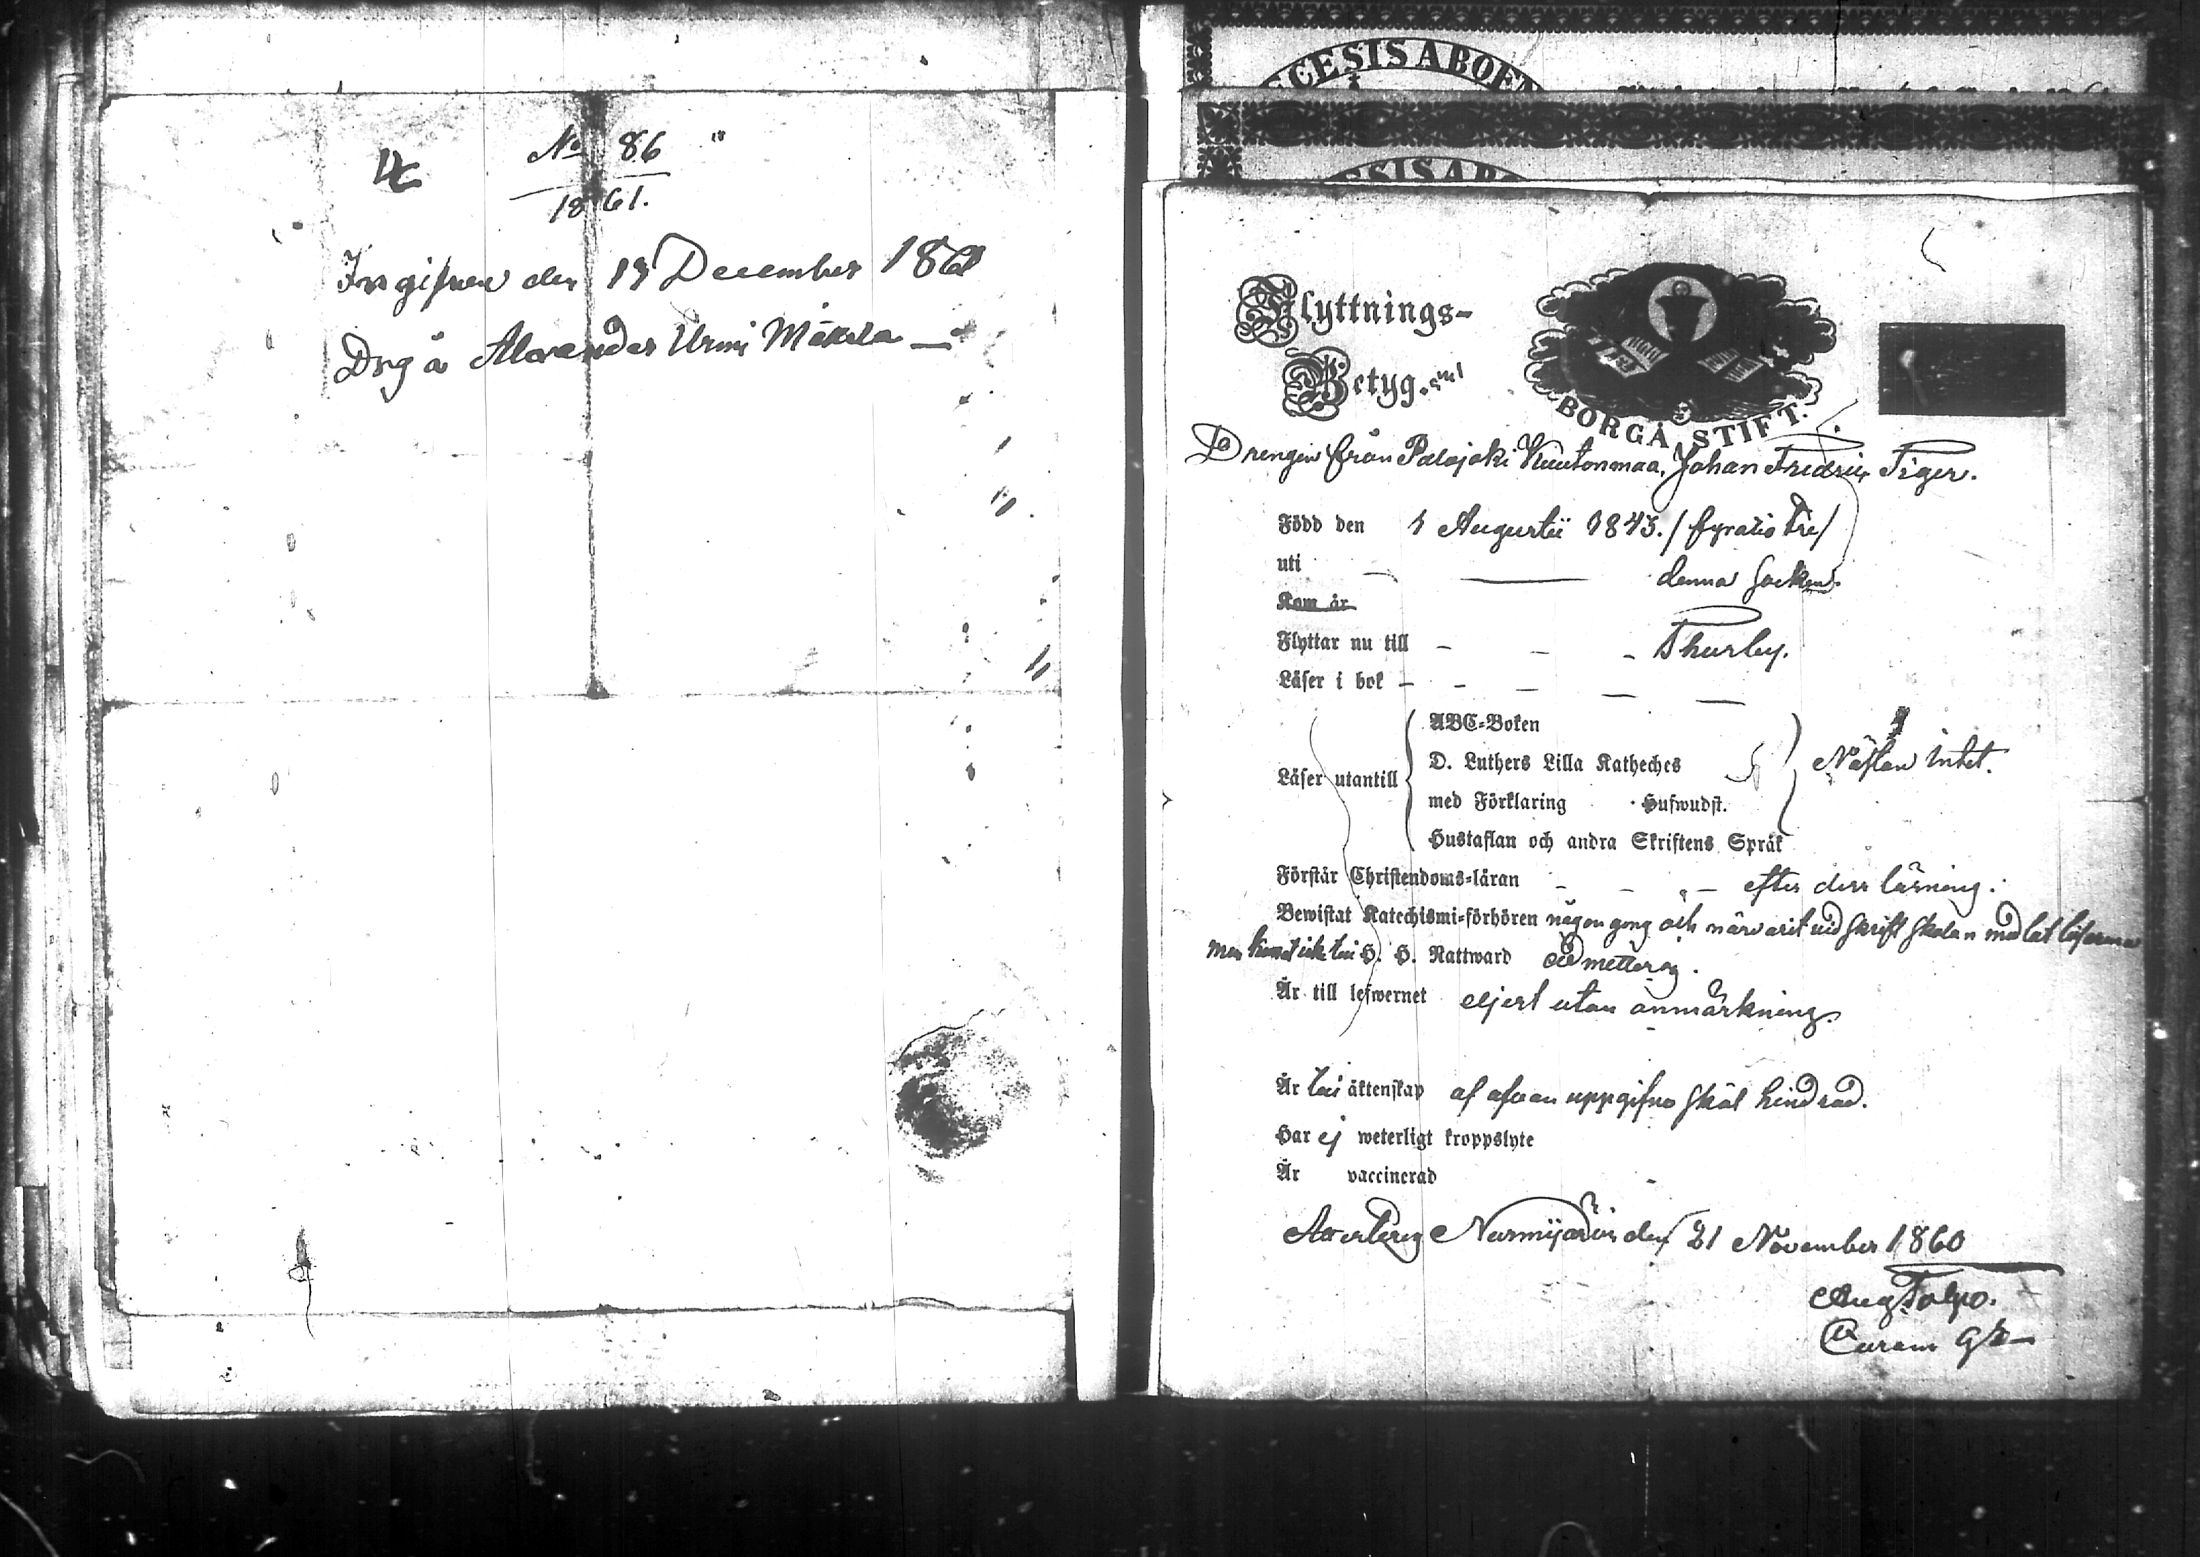 No 86
1861.
Ingifven den 13 December 1861
Drg å Alexander Urmi Mäkelä
Flyttnings-
Betyg.
BORGÅ STIFT.
Drengen från Palojoki Kuutonmaa, Johan Fredric Tiger.
Född den 1 Augustii 1843. / fyratio tre /
uti denna Socken.
Kom år
Flyttar nu till Thusby.
Läser i bok
ABC-Boken
D. Luthers Lilla Katheches
Läser utantill
Nästan intet.
med Förklaring Hufwudst.
Hustaflan och andra Skriftens Språk
Förstår Christendoms-läran efter dess läsning.
Bewistat Katechismi-förhören någon gång och närvarit vid Skrift Skolan
men till H. H. Nattward
Är till lefwernet eljest utan anmärkning.
Är till äktenskap af ofvan uppgifne skäl hindrad.
Har ej weterligt kroppslyte
Är vaccinerad
Attesterg Nurmijärvi den 21 November 1860
Aug Tolpo.
Curam g
CESIS ABOE